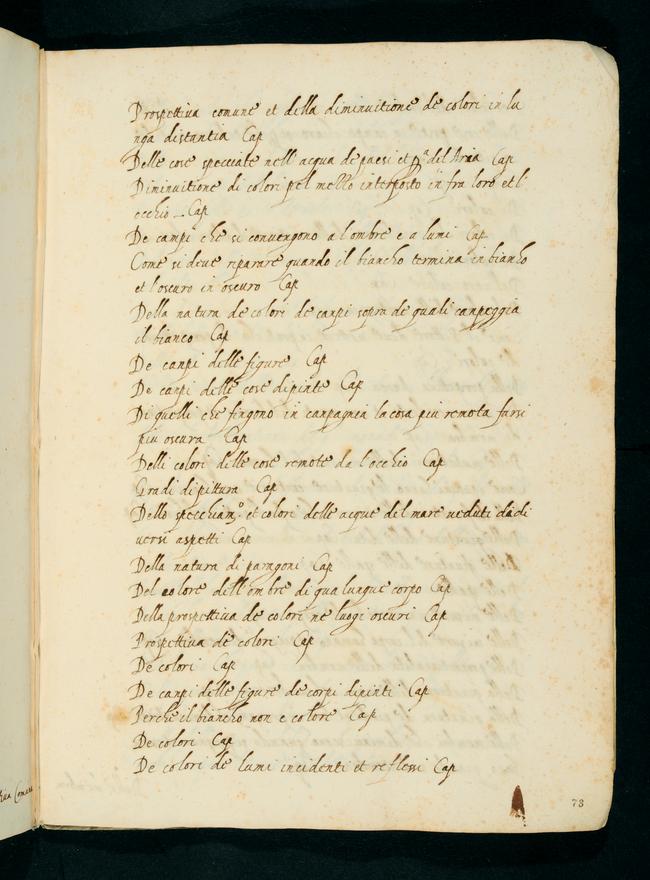 Prospettiva comune et della diminuitione de colori in lu
nga distantia Cap
Delle cose specciate nell'acqua de paesi et p.ª del Aria Cap
Diminuitione di colori pel mezzo interposto in fra loro et l'
occhio _ Cap
De campi che si convengono a l'ombre e a lumi Cap
Come si deve riparare quando il biancho termina in biancho
et l'oscuro in oscuro Cap
Della natura de colori de canpi sopra de quali canpeggia
il bianco Cap
De canpi delle figure Cap
De canpi delle cose dipinte Cap
Di quelli che fingono in canpagnia la cosa piu remota farsi
piu oscura Cap
Delli colori delle cose remote da l'occhio Cap
Gradi di pittura Cap
Dello specchiam.º et colori delle acque del mare veduti da di
versi aspetti Cap
Della natura di paragoni Cap
Del colore dell'ombre di qua lunque corpo Cap
Della prospettiva de colori ne luogi oscuri Cap
Prospettiva de colori Cap
De colori Cap
De canpi delle figure de corpi dipinti Cap
Perche il biancho non e colore Cap
De colori Cap
De colori de lumi incidenti et reflessi Cap
73